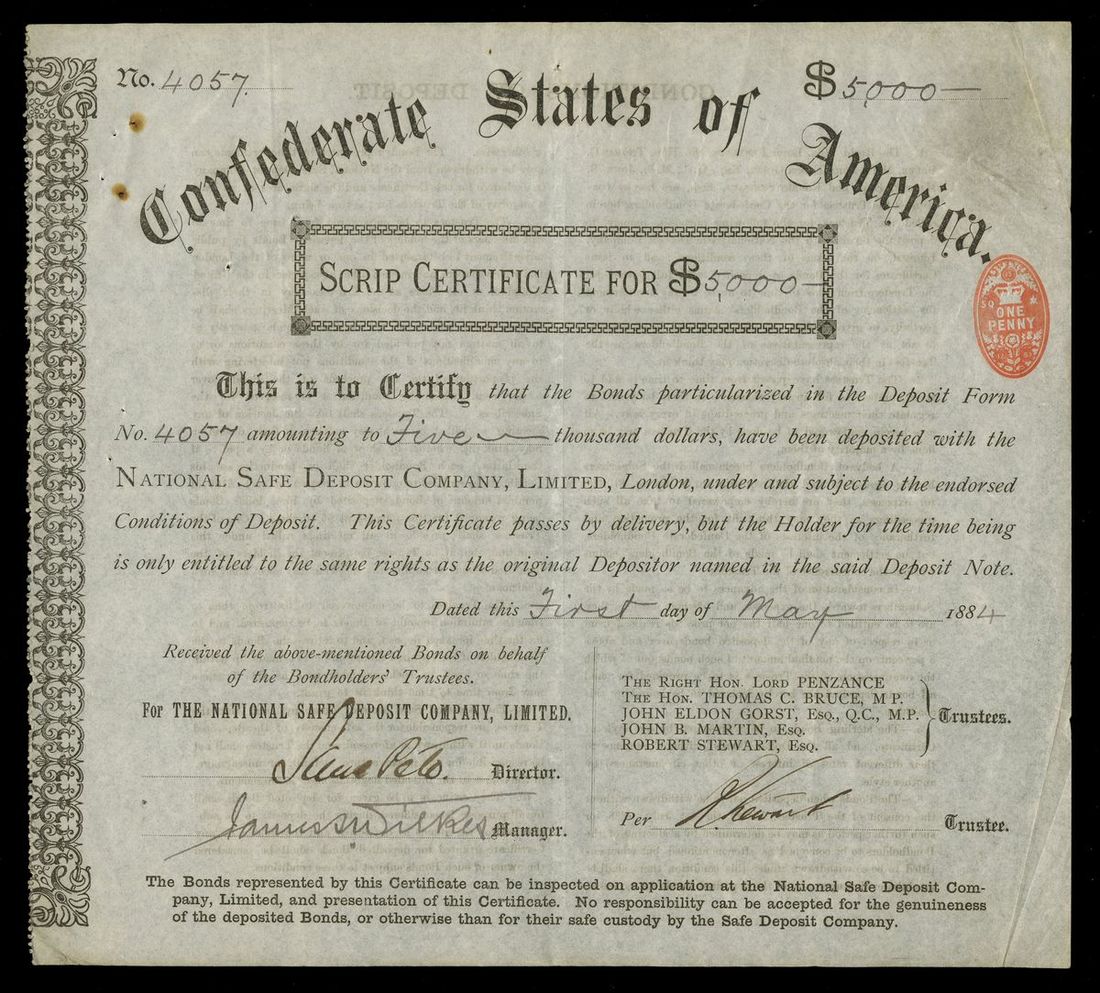 No. 4057.
$5,000
Confederate States of America.
SCRIP CERTIFICATE FOR $5,000
ONE
PENNY
This is to Certify that the Bonds particularized in the Deposit Form
No. 4057 amounting to Five thousand dollars, have been deposited with the
NATIONAL SAFE DEPOSIT COMPANY, LIMITED, London, under and subject to the endorsed
Conditions of Deposit. This Certificate passes by delivery, but the Holder for the time being
is only entitled to the same rights as the original Depositor named in the said Deposit Note.
Dated this First day of May 1884
Received the above-mentioned Bonds on behalf
of the Bondholders' Trustees.
For THE NATIONAL SAFE DEPOSIT COMPANY, LIMITED.
Peto. Director.
James Wilkes Manager.
THE RIGHT HON. LORD PENZANCE
THE HON. THOMAS C. BRUCE, M P.
JOHN ELDON GORST, ESQ., Q.C., M.P.
JOHN B. MARTIN, ESQ.
ROBERT STEWART, ESQ.
Trustees.
Per R Stewart Trustee.
The Bonds represented by this Certificate can be inspected on application at the National Safe Deposit Com-
pany, Limited, and presentation of this Certificate. No responsibility can be accepted for the genuineness
of the deposited Bonds, or otherwise than for their safe custody by the Safe Deposit Company.